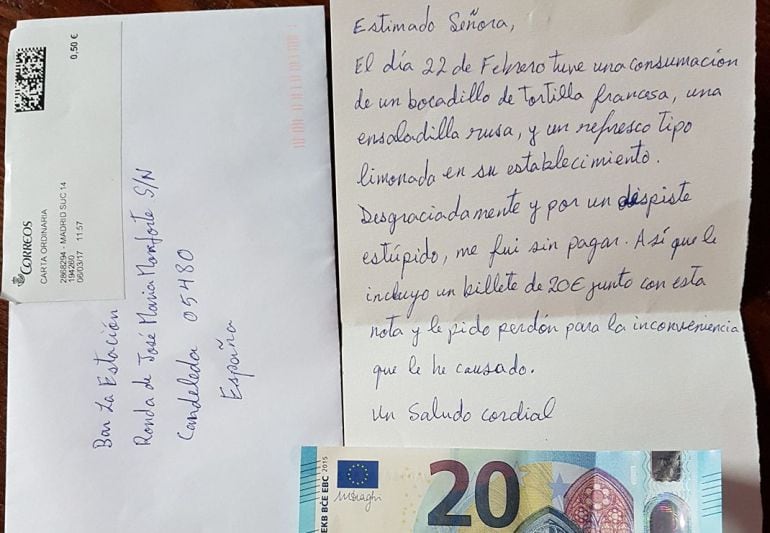 0,50 €
CORREOS
CARTA ORDINARIA
2868294 - MADRID SUC 14
194260
06/03/17 11:57
Bar La Estación
Ronda de José Maria Monforte S/N
Candeleda 05480
España
Estimado Señora,
El día 22 de Febrero tuve una consumación
de un bocadillo de tortilla francesa, una
ensaladilla rusa, y un refresco tipo
limonada en su establecimiento.
Desgraciadamente y por un despiste
estúpido, me fui sin pagar. Así que le
incluyo un billete de 20€ junto con esta
nota y le pido perdón para la inconveniencia
que le he causado.
Un Saludo cordial
EKB BČE EBC 2015
20